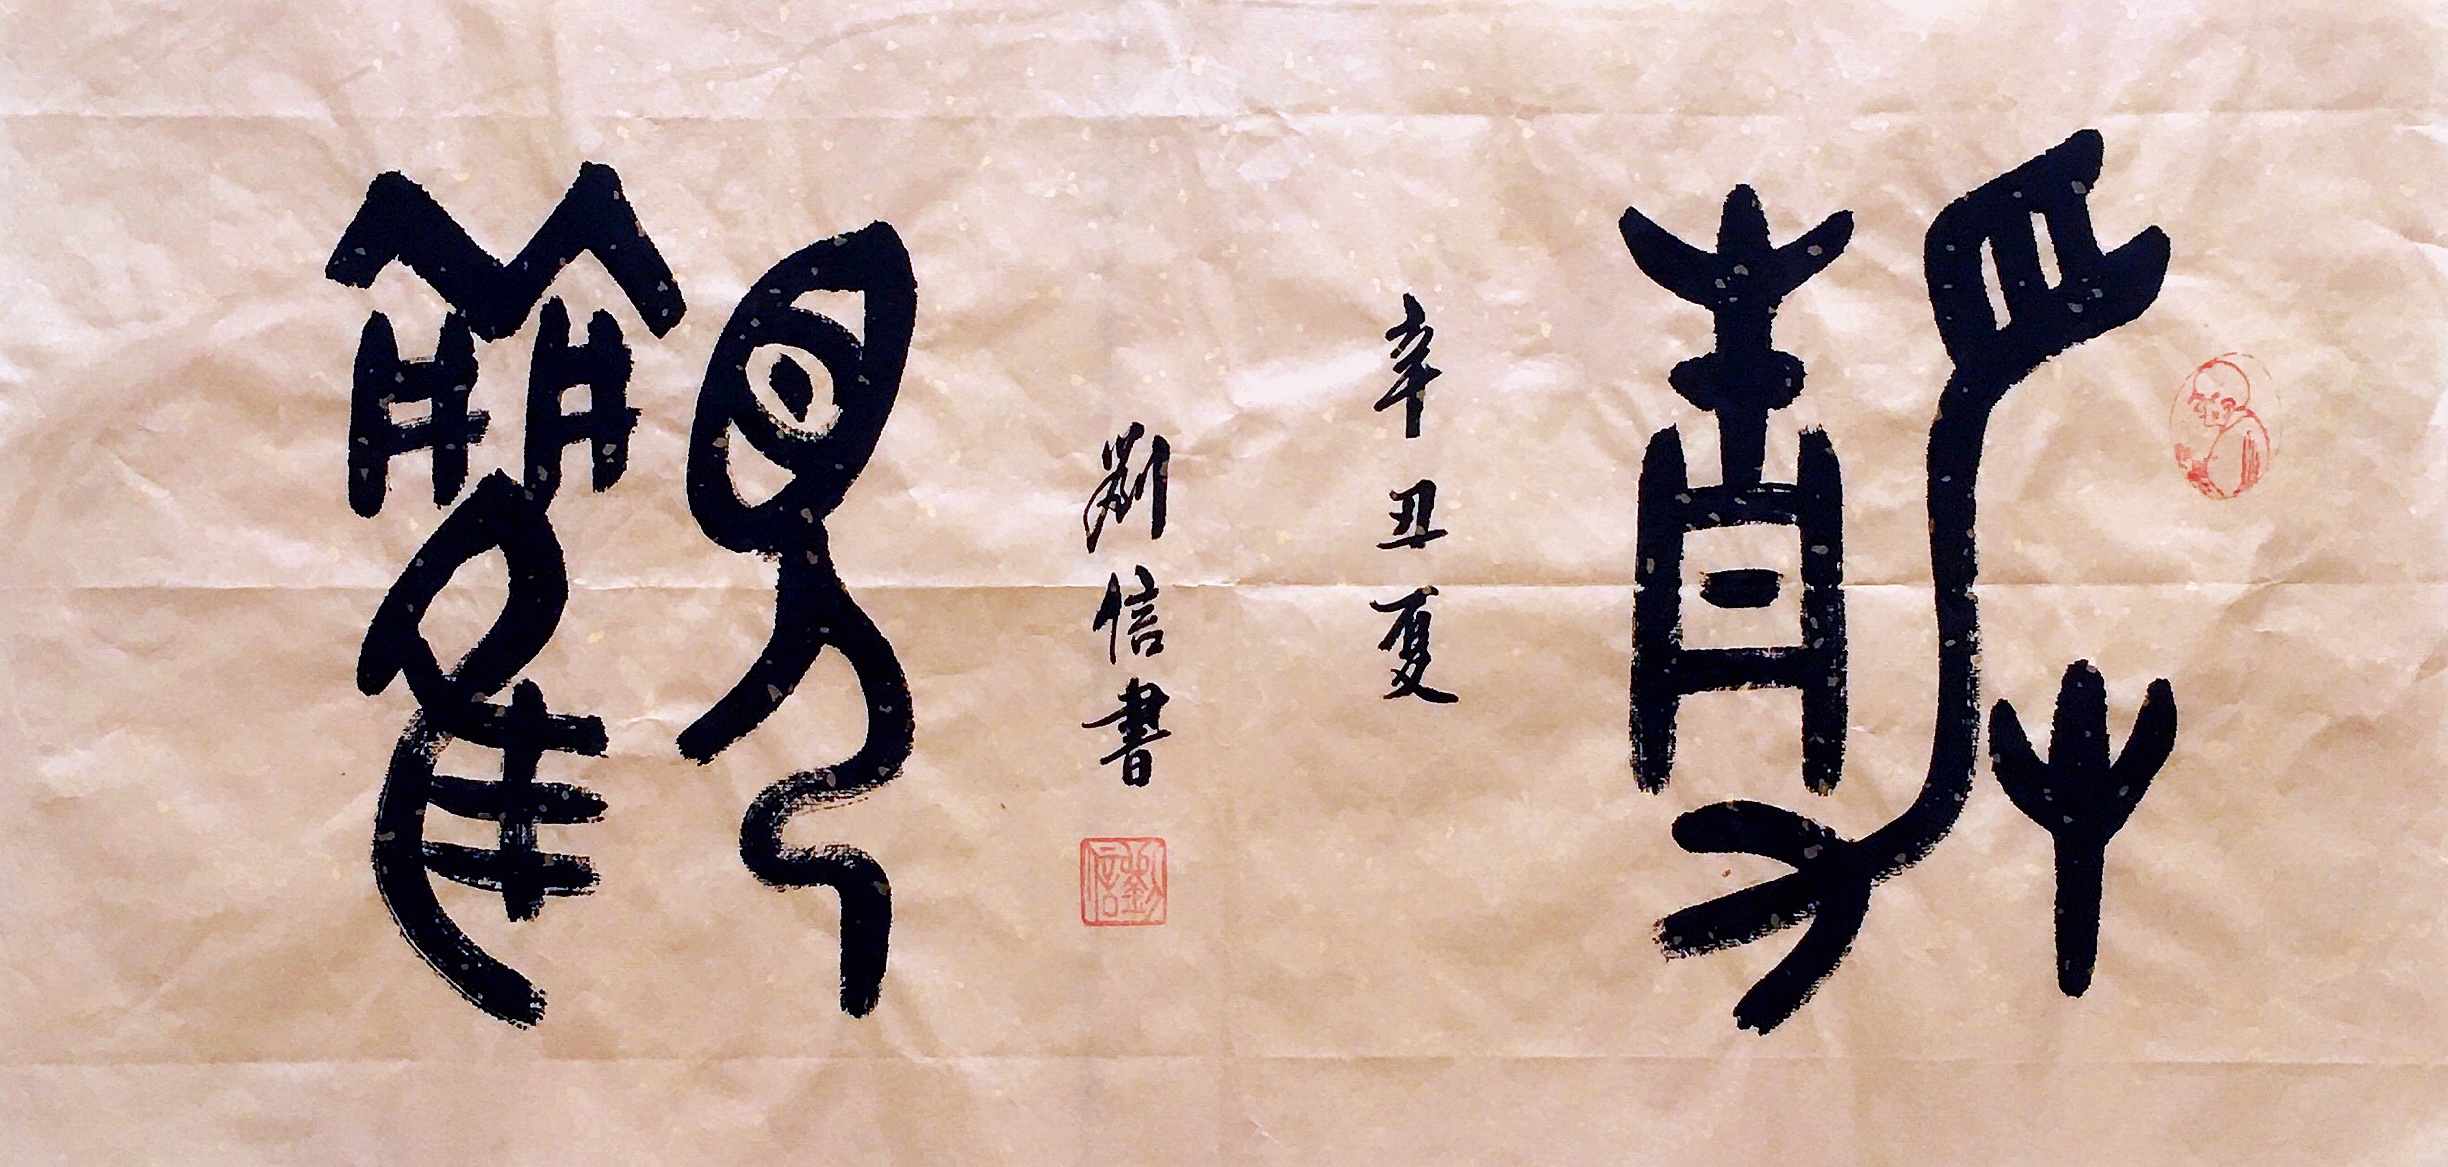 靜
辛丑夏
劉信書
觀
劉信